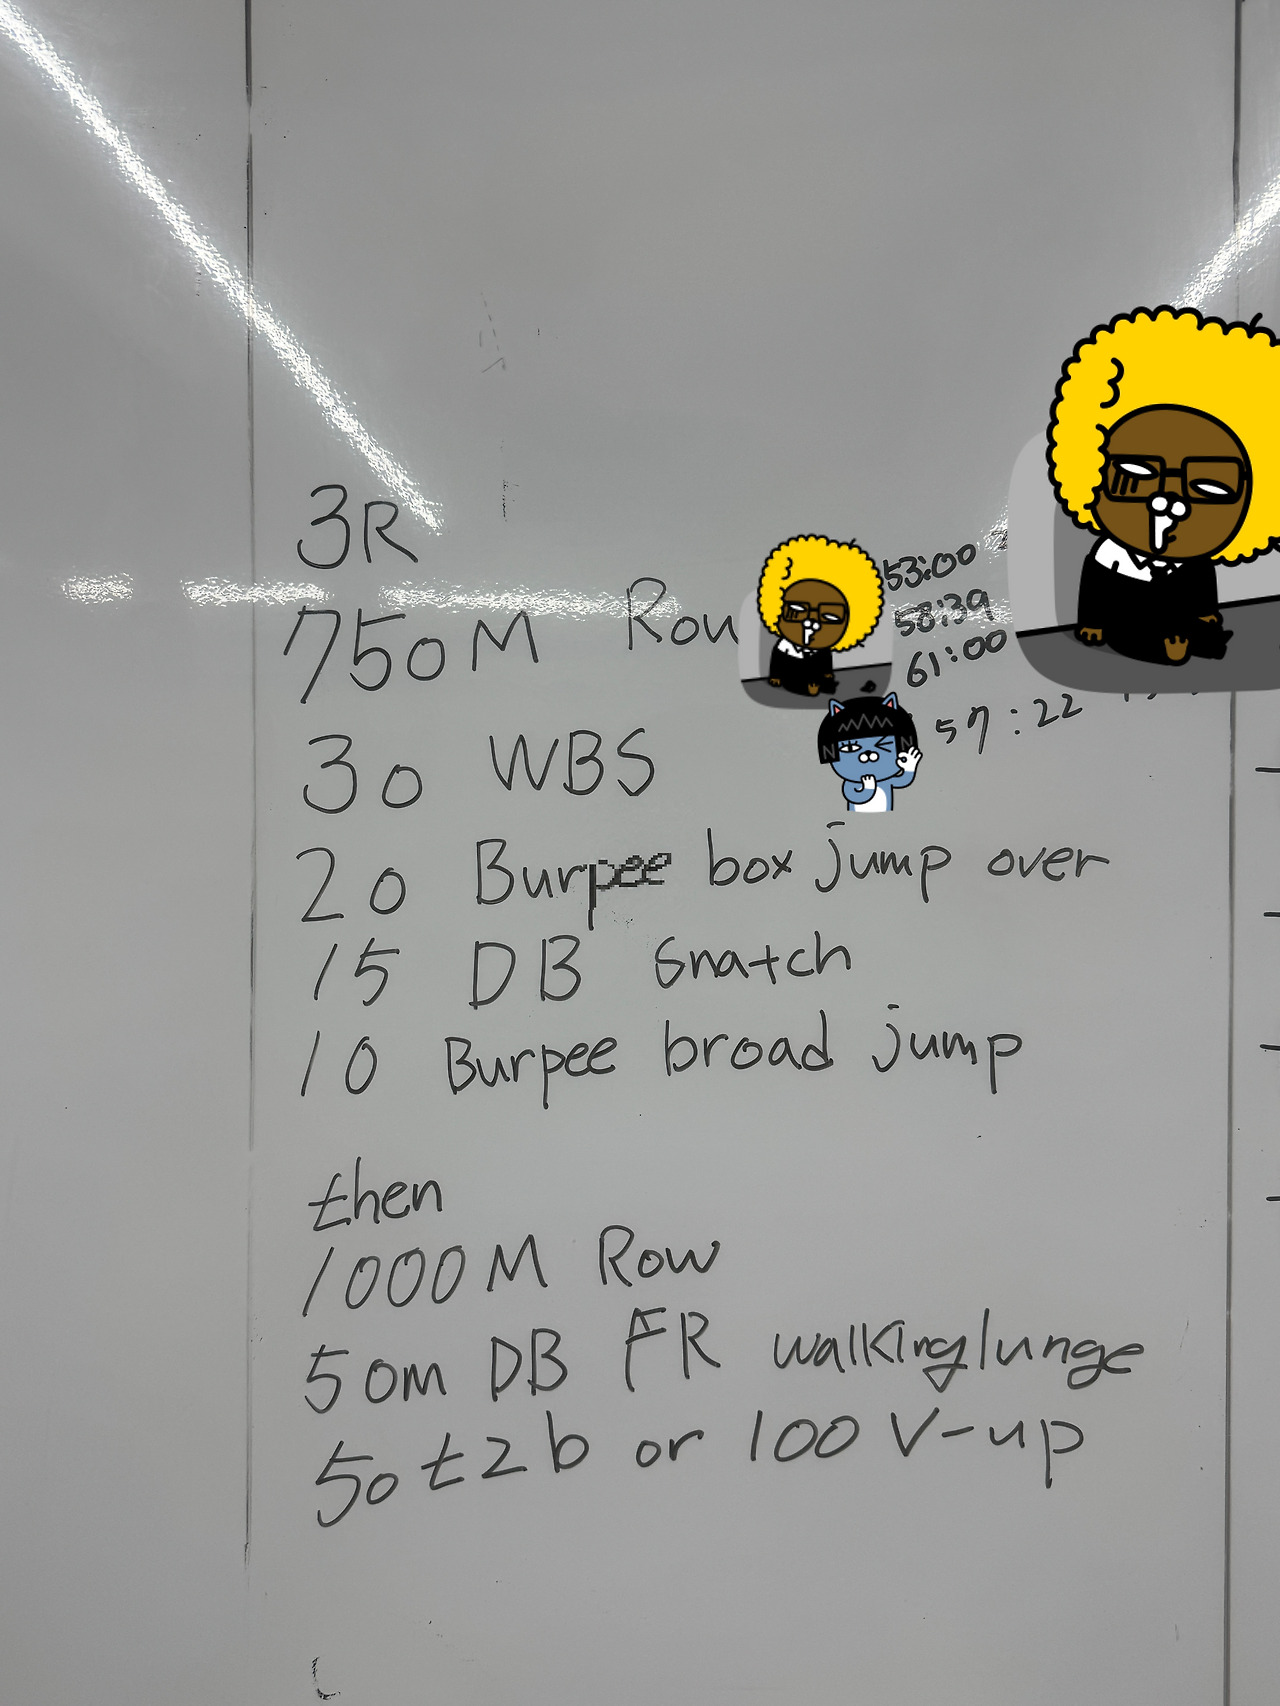 3R
750M Row
53:00
58:39
61:00
57:22
30 WBS
20 Burpee box jump over
15 DB Snatch
10 Burpee broad jump
then
1000M Row
50m DB FR walking lunge
50 t2b or 100 V-up